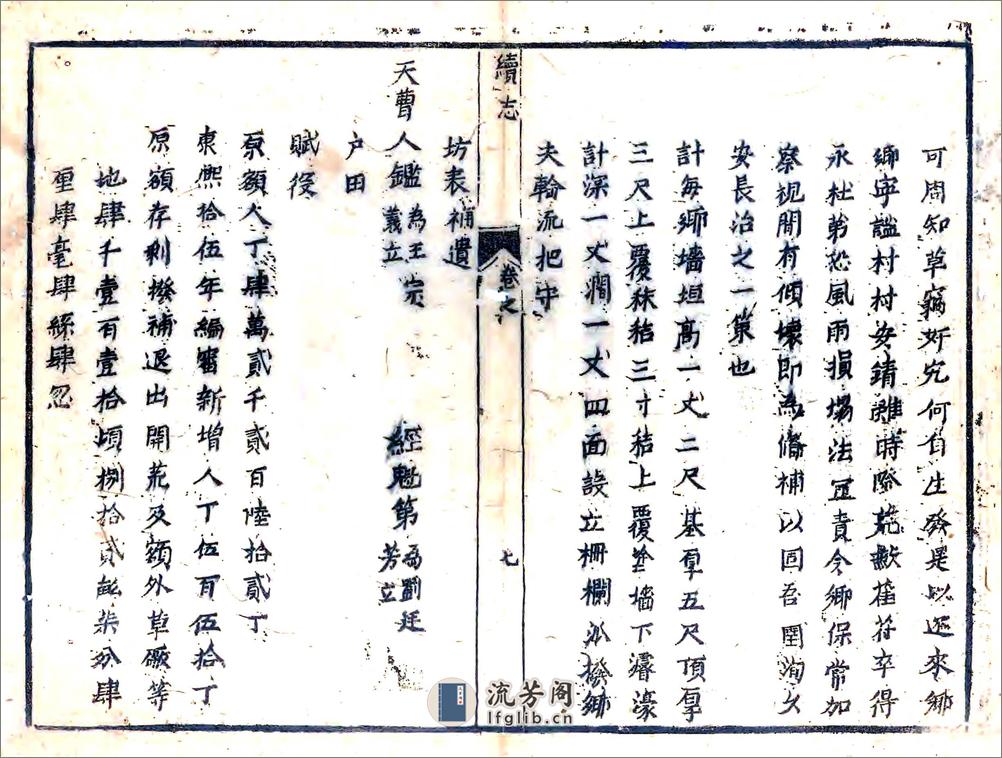 可周知草竊奸宄何自生發是以邇來鄉
鄉寧謐村村安錆雖時際荒歉萑苻卒得
永杜第恐風雨損塲法宜責令鄉保常加
察視間有傾壞即為脩補以固吾圉洵久
安長治之一策也
計每鄉墻垣高一丈二尺基厚五尺頂厚
三尺上覆秫秸三寸秸上覆墻下濬濠
計深一丈濶一丈四面設立柵欄派撥鄉
夫輪流把守
續志
卷之
七
坊表補遺
天曹人鑑為王宗義立 經魁第為劉廷芳立
户田
賦役
原額人丁肆萬貳千貳百陸拾貳丁
康熙拾伍年編審新增人丁伍百伍拾丁
原額存剩撥補退出開荒及額外草廠等
地肆千壹百壹拾頃捌拾貳畝柒分肆
厘肆毫肆絲肆忽
流芳阁
lfglib.cn